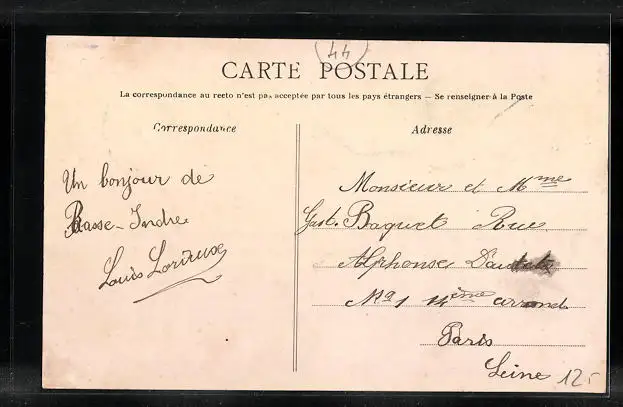 (44)
CARTE POSTALE
La correspondance au recto n'est pas acceptée par tous les pays étrangers — Se renseigner à la Poste
Correspondance
Adresse
Un bonjour de
Basse-Indre
Louis
Monsieur et Mme
Gust. Baquet Rue
Alphonse Daudet
No 1 14ème arrond
Paris
Seine
12